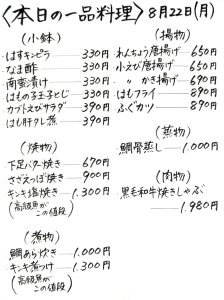 〈本日の一品料理〉8月22日(月)
(小鉢)
はすキンピラ 330円
なま酢 330円
南蛮漬け 330円
はもの子玉子とじ 330円
カブトエビサラダ 390円
はも肝タレ蒸 390円
(焼物)
下足バター焼き 670円
さざえっぽ焼き 900円
キンキ塩焼き 1.300円
(高級魚が
この値段)
(煮物)
鯛あら炊き 1.000円
キンキ煮つけ 1.300円
(高級魚が
この値段)
(揚物)
わんちょう唐揚げ 650円
小えび唐揚げ 650円
〃 かき揚げ 690円
はもフライ 890円
ふぐカツ 890円
(蒸物)
鯛骨蒸し 1.000円
(肉物)
黒毛和牛焼きしゃぶ
1.980円